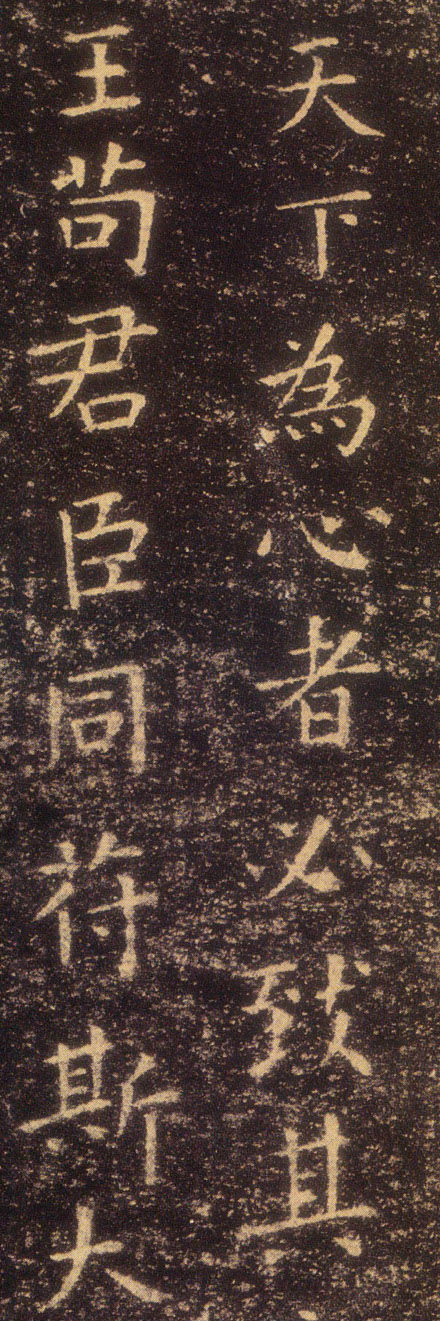 天下為心者必致其
王苟君臣同符斯大